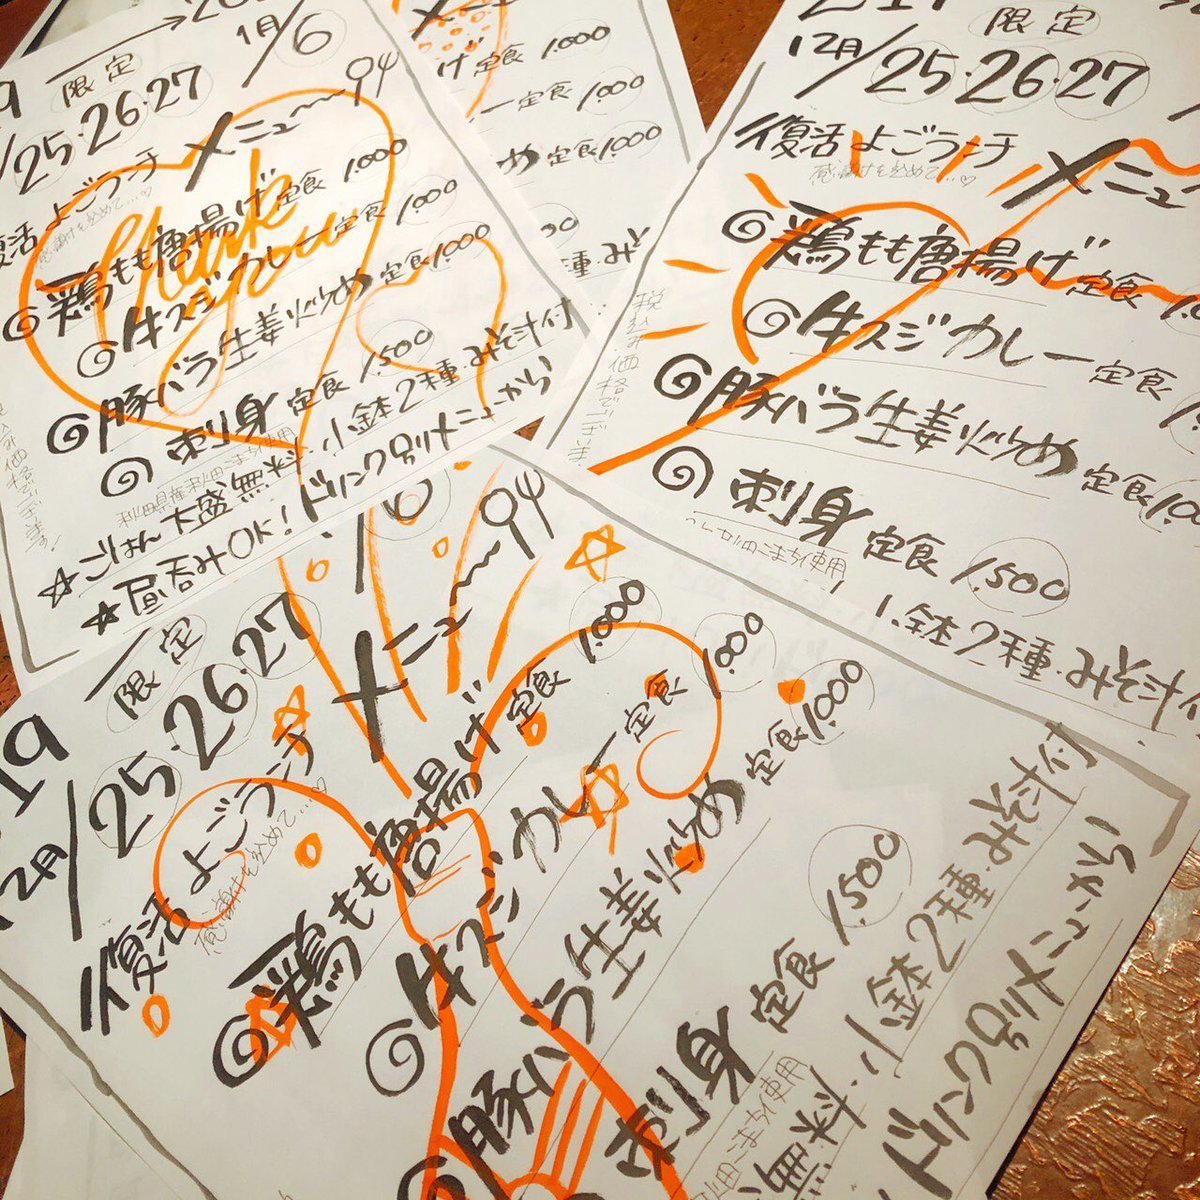 限定
1月/6
/25・26・27
復活 よごランチ メニュー
感謝を込めて…♡
Thank You
鶏もも唐揚げ定食 1.000
牛スジカレー定食 1.000
豚バラ生姜炒め定食 1.000
刺身定食 1.500
秋田県産秋田こまち使用
☆ごはん大盛無料・小鉢2種・みそ汁付
★昼呑みOK!ドリンク別メニューから!
げ定食 1.000
ー定食 1.000
め定食 1.000
限定
12月/25・26・27
復活 よごランチ メニュ
感謝を込めて…♡
鶏もも唐揚げ定食
牛スジカレー定食
豚バラ生姜炒め定食 1.000
刺身定食 1.500
田こまち使用
小鉢2種・みそ汁付
税込み価格でござい
19
限定
12月/25・26・27
復活 よごランチ メニュー
感謝を込めて…♡
鶏もも唐揚げ定食 1.000
牛スジカレー定食 1.000
豚バラ生姜炒め定食 1.000
刺身定食 1.500
田こまち使用
料・小鉢2種・みそ汁付
ドリンク別メニューから!